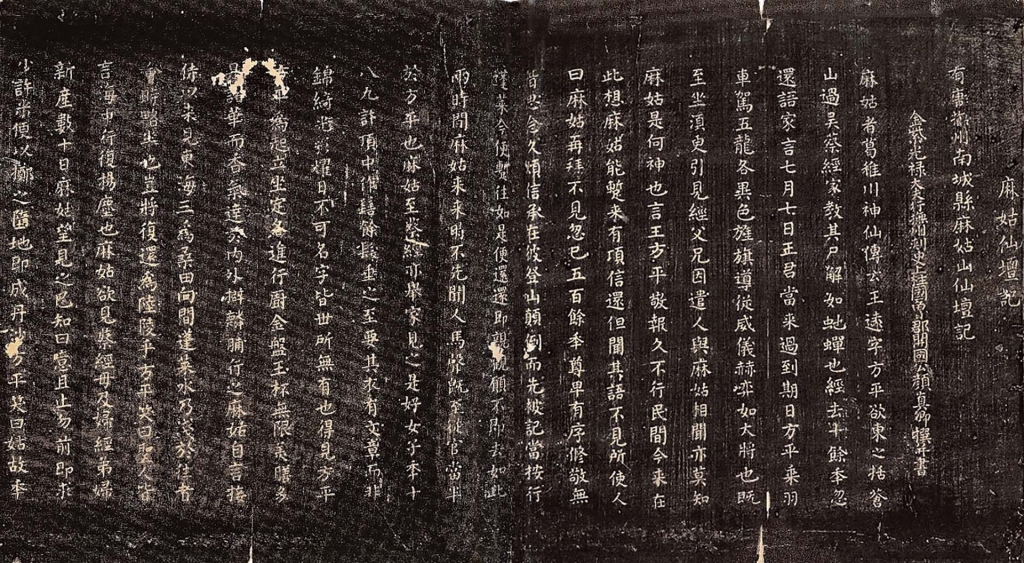 麻姑仙壇記
有唐撫州南城縣麻姑山仙壇記
金紫光祿大夫行撫州刺史上柱國魯郡開國公顏真卿撰并書
麻姑者葛稚川神仙傳云王遠字方平欲東之括蒼
山過吳蔡經家教其尸解如虵蟬也經去十餘年忽
還語家言七月七日王君當來過到期日方平乘羽
車駕五龍各異色旌旗導從威儀赫弈如大將也既
至坐須臾引見經父兄因遣人與麻姑相聞亦莫知
麻姑是何神也言王方平敬報久不行民間今來在
此想麻姑能蹔來有頃信還但聞其語不見所使人
曰麻姑再拜不見忽已五百餘年尊卑有序修敬無
階思念久煩信承在彼登山顛倒而先被記當按行
蓬萊今便蹔往如是便還還即親觀願不即去如此
兩時聞麻姑來來時不先聞人馬聲既至從官當半
於方平也麻姑至蔡經亦舉家見之是好女子年十
八九許頂中作髻餘髮垂之至要其衣有文章而非
錦綺光彩耀日不可名字皆世所無有也得見方平
平為起立坐定各進行廚金盤玉杯無限美膳多
是諸華而香氣達於內外擗麟脯行之麻姑自言接
侍以來見東海三為桑田向間蓬萊水乃淺於往者
會時略半也豈將復還為陸陵乎方平笑曰聖人皆
言海中行復揚塵也麻姑欲見蔡經母及婦經弟婦
新產數十日麻姑望見之已知曰噫且止勿前即求
少許米便以擲之墮地即成丹沙方平笑曰姑故年